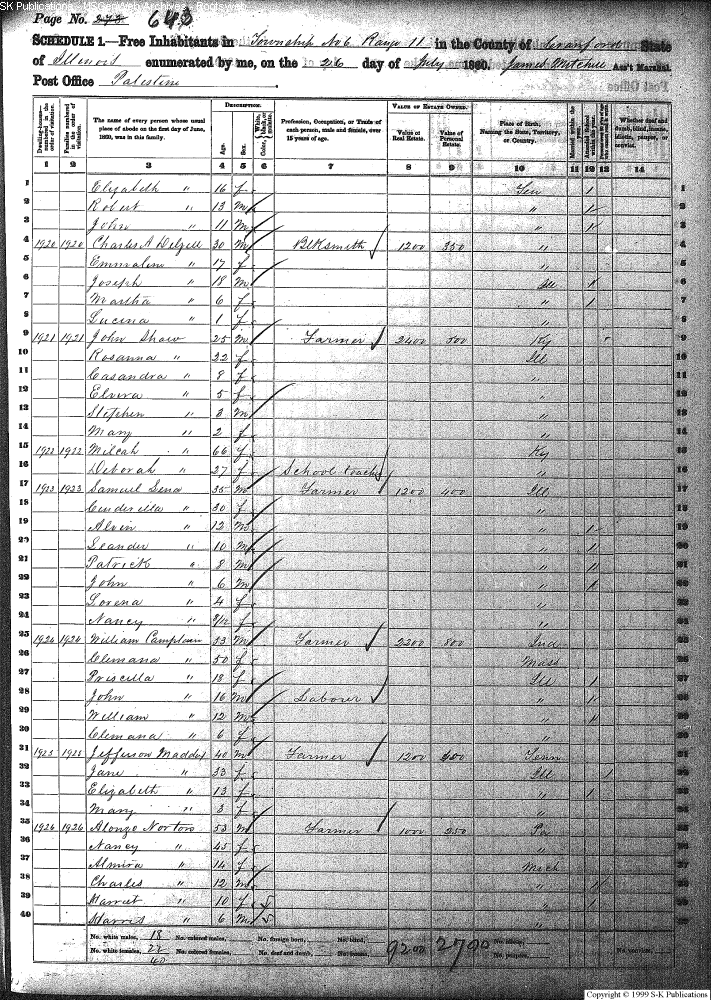 SK Publications - USGenWeb Archives - Rootsweb
Page No. 273. 643
SCHEDULE 1.—Free Inhabitants in Township No 6 Range 11 in the County of Crawford State
of Illinois enumerated by me, on the 26 day of July 1860. James Mitchell Ass't Marshal.
Post Office Palestine
DESCRIPTION. VALUE OF ESTATE OWNED.
Dwelling-houses—numbered in the order of visitation. Families numbered in the order of visitation. The name of every person whose usual place of abode on the first day of June, 1860, was in this family. Age. Sex. Color, White, black, or mulatto. Profession, Occupation, or Trade of each person, male and female, over 15 years of age. Value of Real Estate. Value of Personal Estate. Place of Birth, Naming the State, Territory, or Country. Married within the year. Attended School within the year. Whether deaf and dumb, blind, insane, idiotic, pauper, or convict.
1 2 3 4 5 6 7 8 9 10 11 12 13 14
1 Elizabeth " 16 f Ten 1 1
2 Robert " 13 m " 1 2
3 John " 11 m " 1 3
4 1920 1920 Charles A 30 m Blksmith 1200 350 " 4
5 Emmaline " 17 f " 5
6 Joseph " 18 m Ill 1 6
7 Martha " 6 f " 1 7
8 Lucina " 1 f " 8
9 1921 1921 John Shaw 25 m Farmer 2400 500 Ky 9
10 Rosanna " 32 f Ill 10
11 Casandra " 8 f " 11
12 Elvira " 5 f " 12
13 Stephen " 3 m " 13
14 Mary " 2 f " 14
15 1922 1922 Milcah " 66 f Ky 15
16 Deborah " 27 f School teacher " 16
17 1923 1923 Samuel 35 m Farmer 1200 400 Ill 17
18 Cinderella " 30 f " 18
19 Alvin " 12 m " 1 19
20 Leander " 10 m " 1 20
21 Patrick " 8 m " 1 21
22 John " 6 m " 1 22
23 Lorena " 4 f " 23
24 Nancy " f " 24
25 1924 1924 William Camplain 53 m Farmer 2200 800 Ind 25
26 Clemana " 50 f Mass 26
27 Priscilla " 18 f Ill 1 27
28 John " 16 m Labourer " 1 28
29 William " 12 m " 1 29
30 Clemana " 6 f " 30
31 1925 1925 Jefferson Maddox 40 m Farmer 1200 400 Tenn 31
32 Jane " 33 f Ill 1 32
33 Elizabeth " 13 f " 1 33
34 Mary " 3 f " 34
35 1926 1926 Alonzo Norton 53 m Farmer 1000 250 Pa 35
36 Nancy " 45 f " 36
37 Almira " 14 f Mich 37
38 Charles " 12 m " 1 38
39 Harriet " 10 f " 1 39
40 Harris " 6 m " 40
No. white males, 18 No. colored males, No. foreign born, No. blind, 9200 2700 No. idiotic,
No. white females, 22 No. colored females, No. deaf and dumb, No. insane, No. paupers, No. convicts,
40
Copyright © 1999 S-K Publications